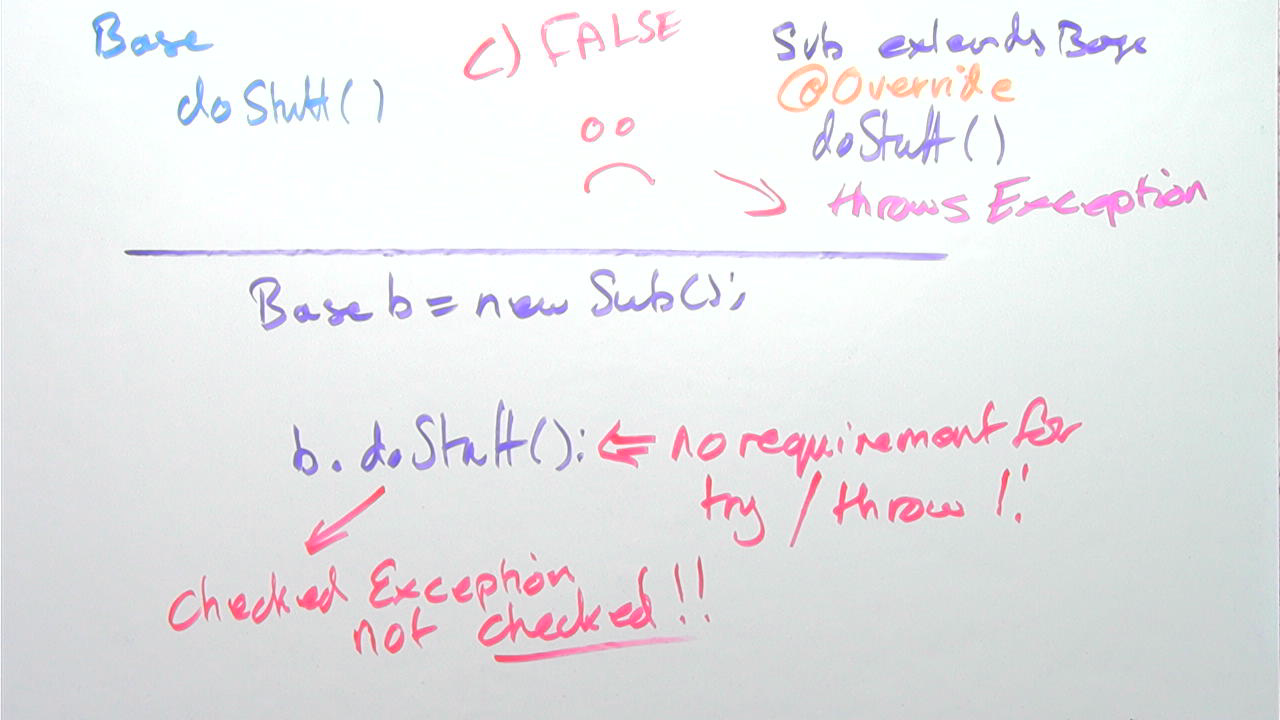 Base
doStuff()
c) FALSE
Sub extends Base
@Override
doStuff()
throws Exception
Base b = new Sub();
b.doStuff();
no requirement for
try / throw !!
Checked Exception
not checked!!